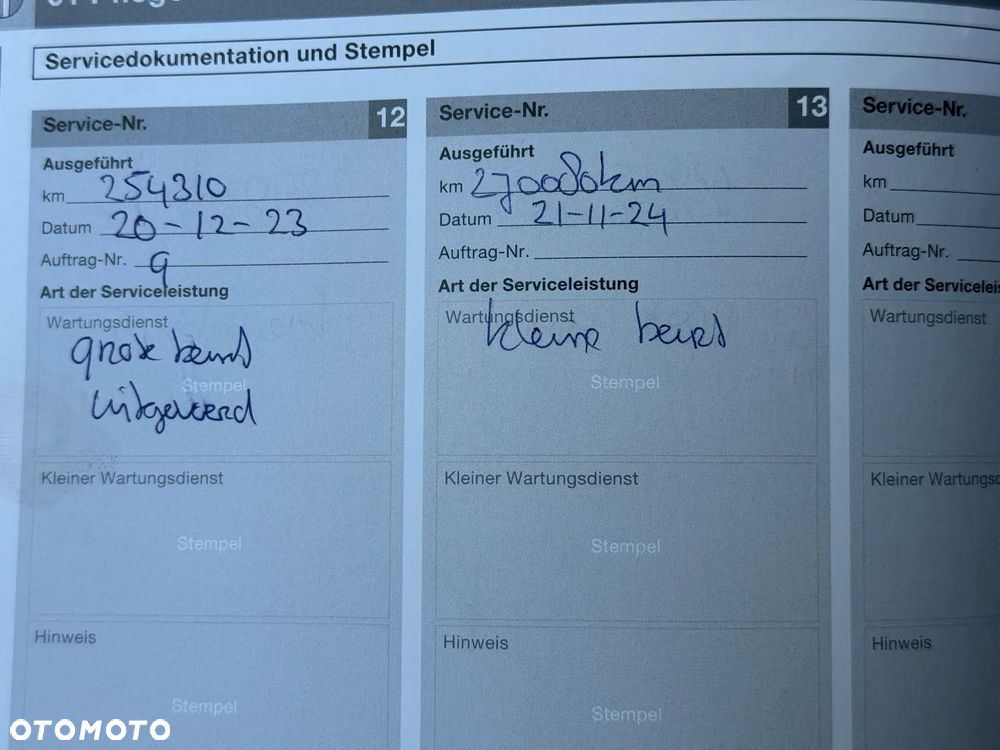 Servicedokumentation und Stempel
Service-Nr. 12
Ausgeführt
km 254310
Datum 20-12-23
Auftrag-Nr. 9
Art der Serviceleistung
Wartungsdienst
grote beurt
Stempel
uitgevoerd
Kleiner Wartungsdienst
Stempel
Hinweis
Stempel
Service-Nr. 13
Ausgeführt
km 270080km
Datum 21-11-24
Auftrag-Nr.
Art der Serviceleistung
Wartungsdienst
kleine beurt
Stempel
Kleiner Wartungsdienst
Stempel
Hinweis
Stempel
Service-Nr.
Ausgeführt
km
Datum
Auftrag-Nr.
Art der Servicelei
Wartungsdienst
Kleiner Wartungsd
Hinweis
OTOMOTO